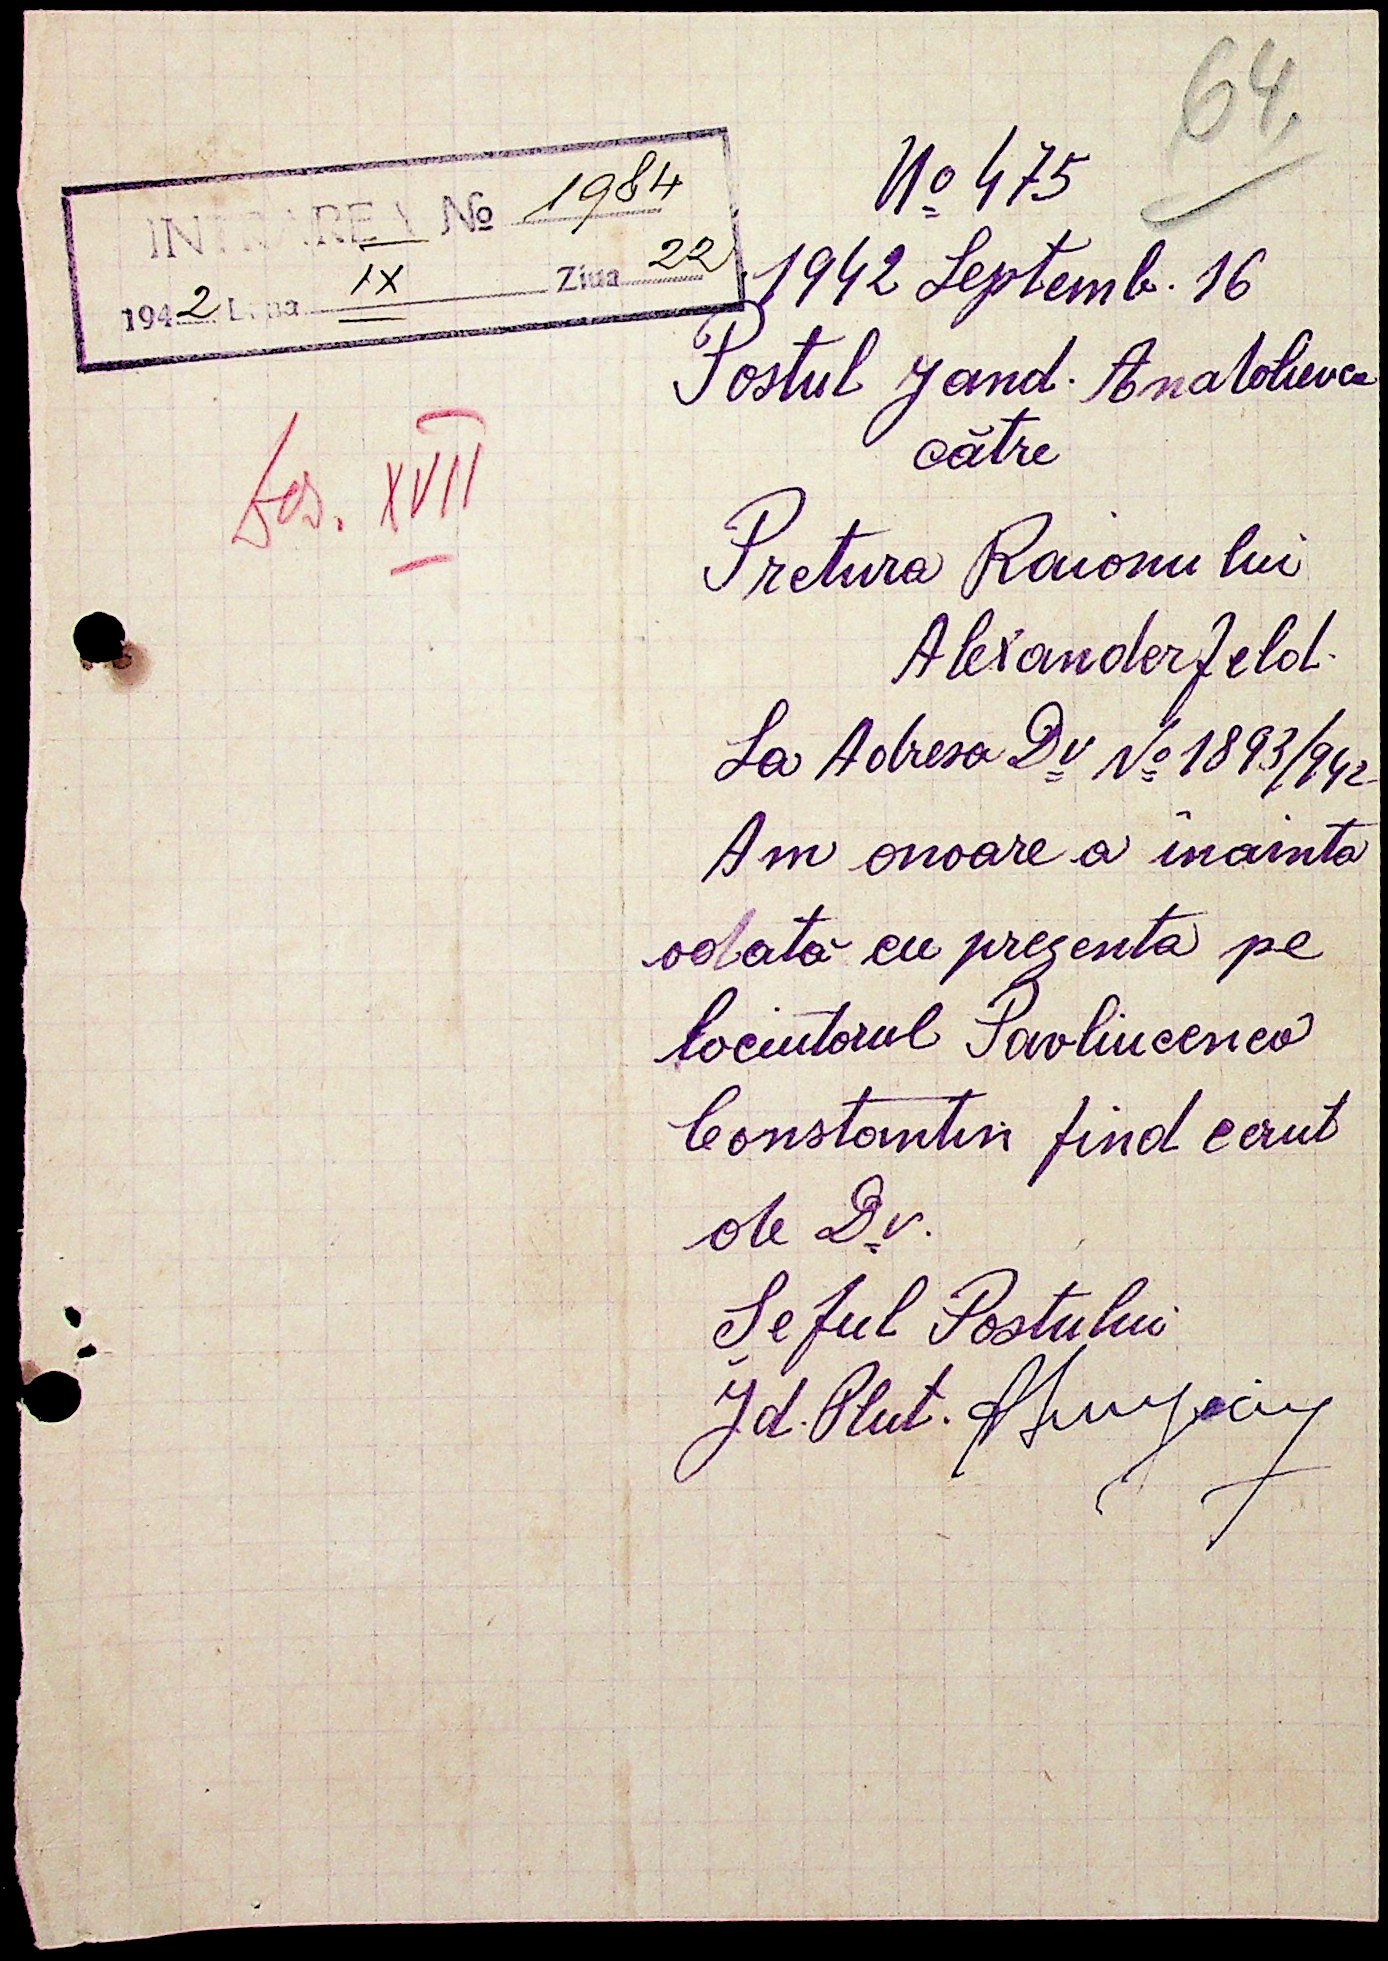 64.
INTRAREA № 1984
1942 Luna IX Ziua 22
№ 475
1942 Septemb. 16
Postul Jand. Anatolievca
către
Pretura Raionului
Alexanderfeld.
La Adresa Dv № 1893/942
Am onoare a înainta
odată cu prezenta pe
lociutorul Pavliucenco
Constantin find cerut
de Dv.
Șeful Postului
Jd. Plut.
Dos. XVII